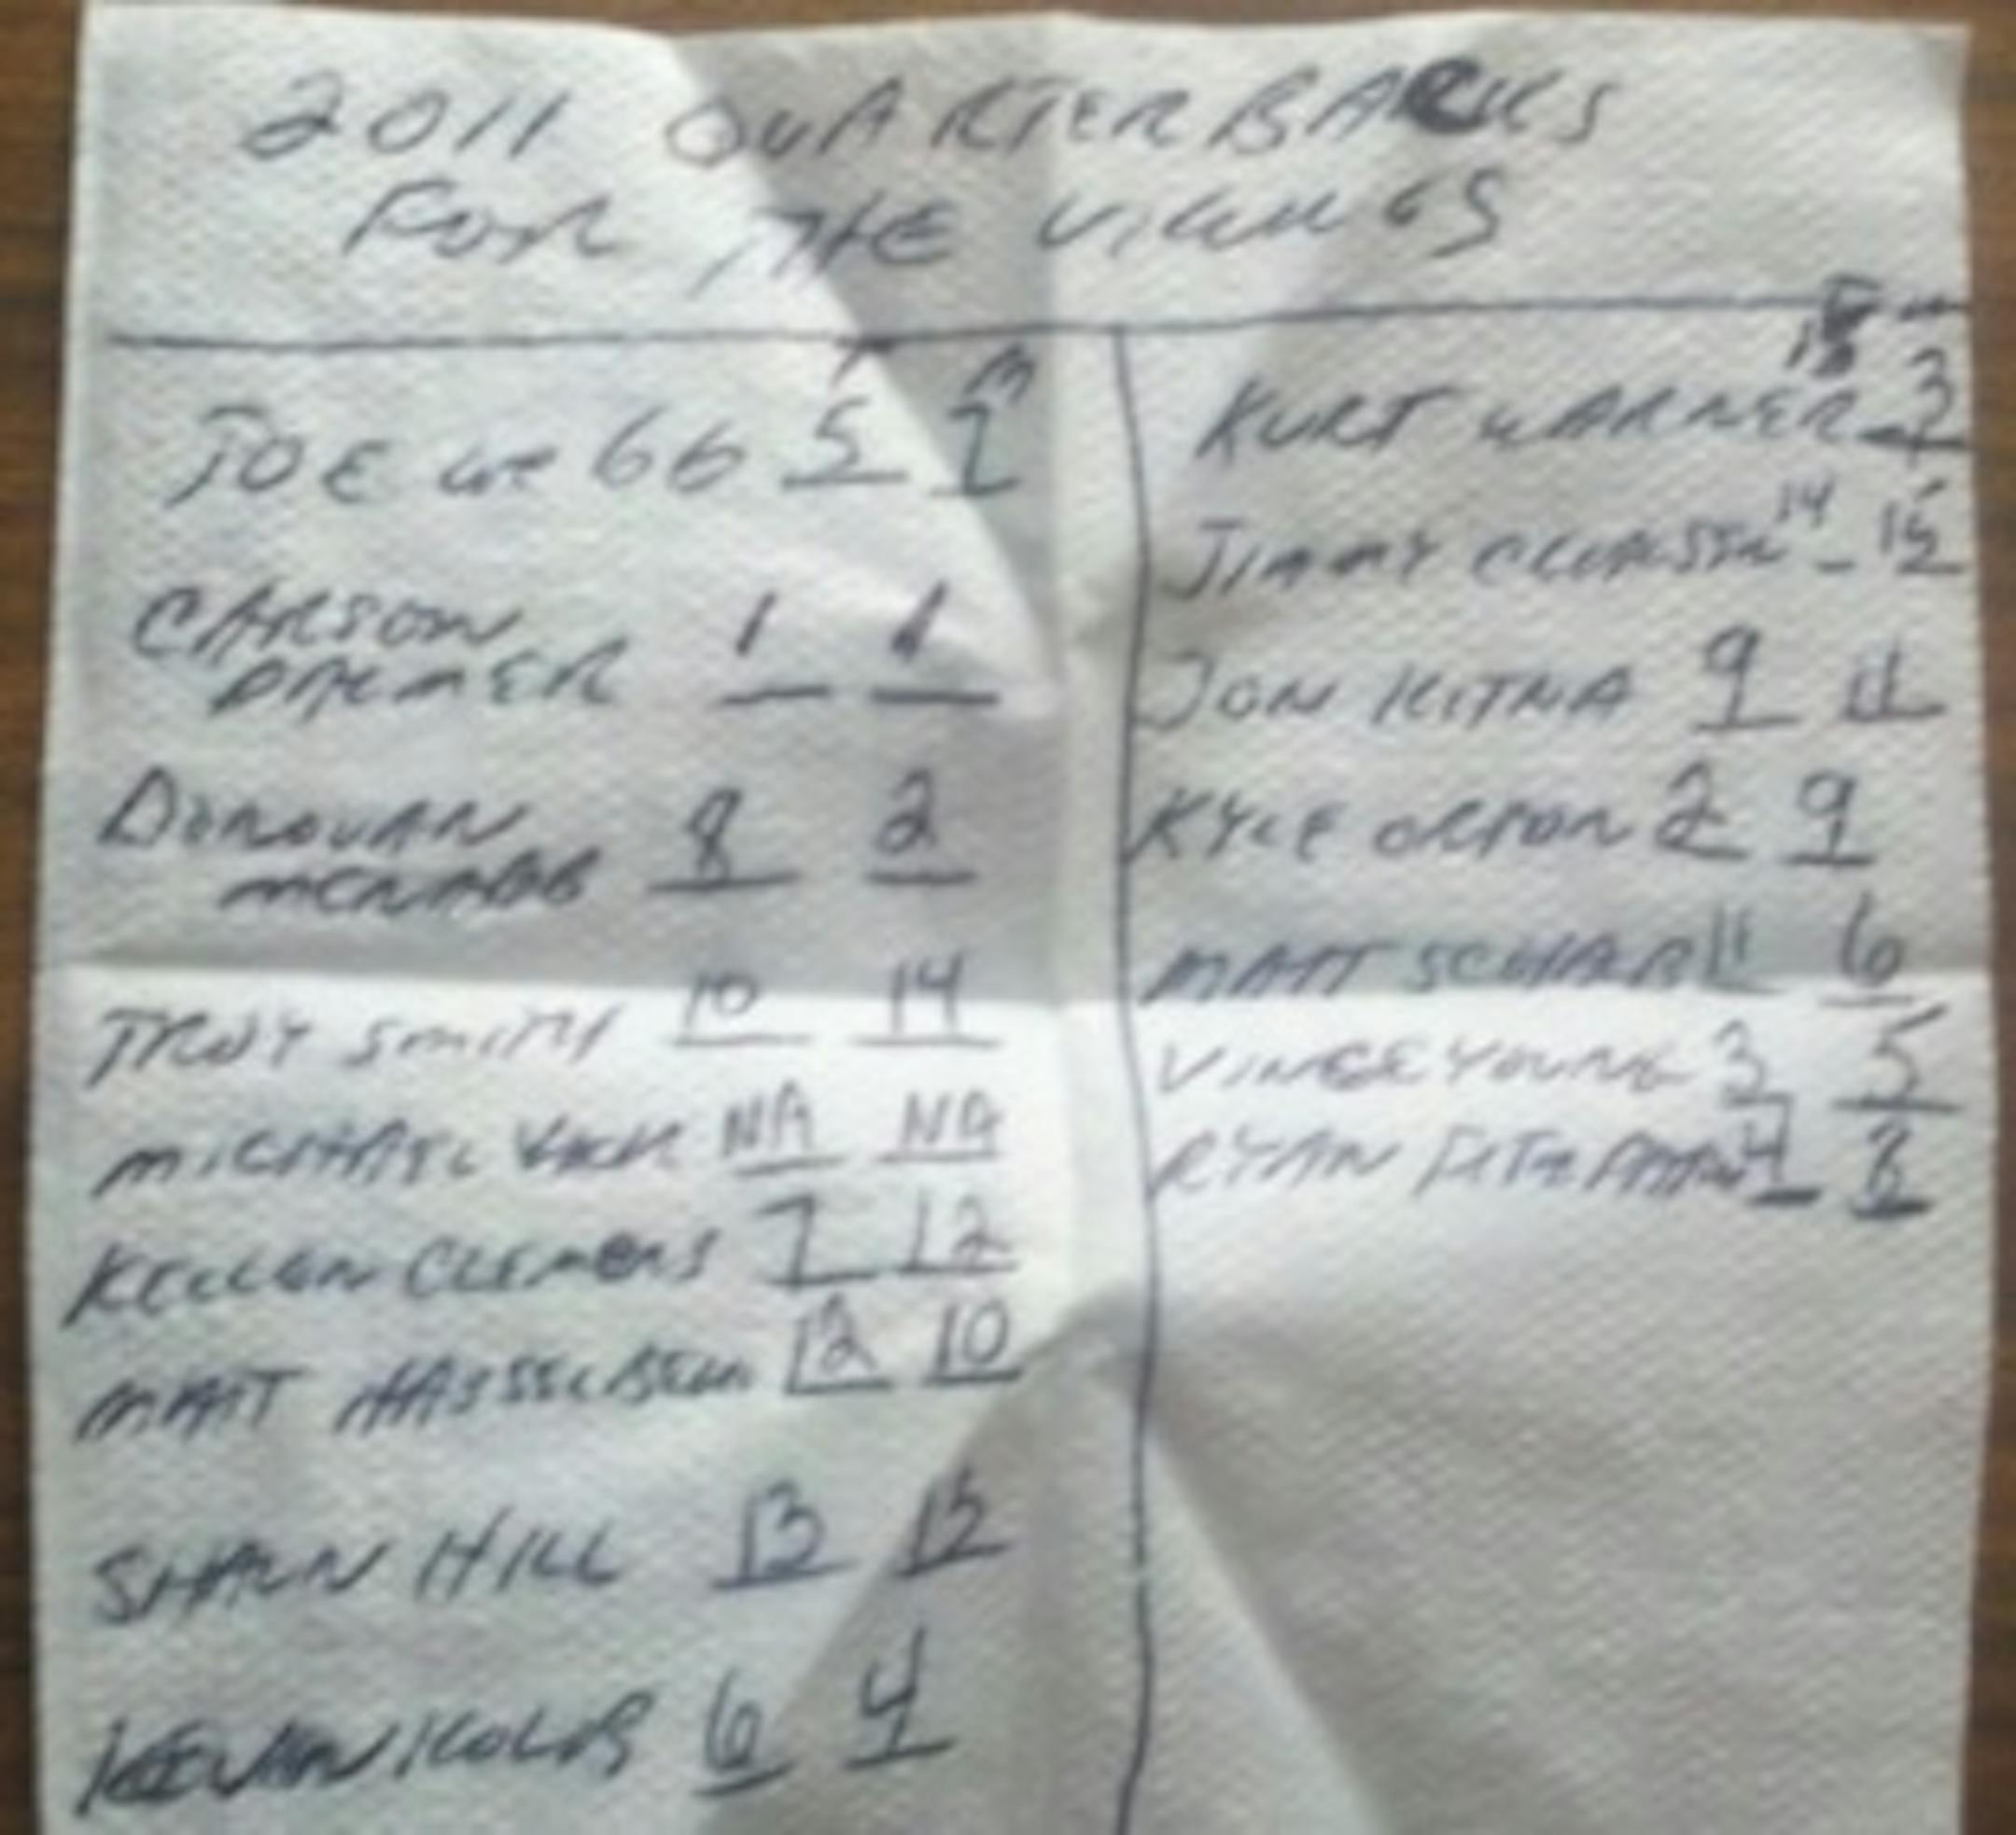 2011 QUARTERBACKS
FOR THE VIKINGS
JOE WE 66 5 7
CARSON 1 1
PALMER
DONOVAN 8 2
MCNABB
TROY SMITH 10 14
MICHAEL VICK NA NA
KELLEN CLEMENS 7 12
MATT HASSELBECK 12 10
SHAUN HILL 13 13
KEVIN KOLB 6 4
KURT WARNER 3
JIMMY CLAUSEN 14 15
JON KITNA 9 11
KYLE ORTON 2 9
MATT SCHAUB 11 6
VINCE YOUNG 3 5
RYAN FITZPATRICK 4 8